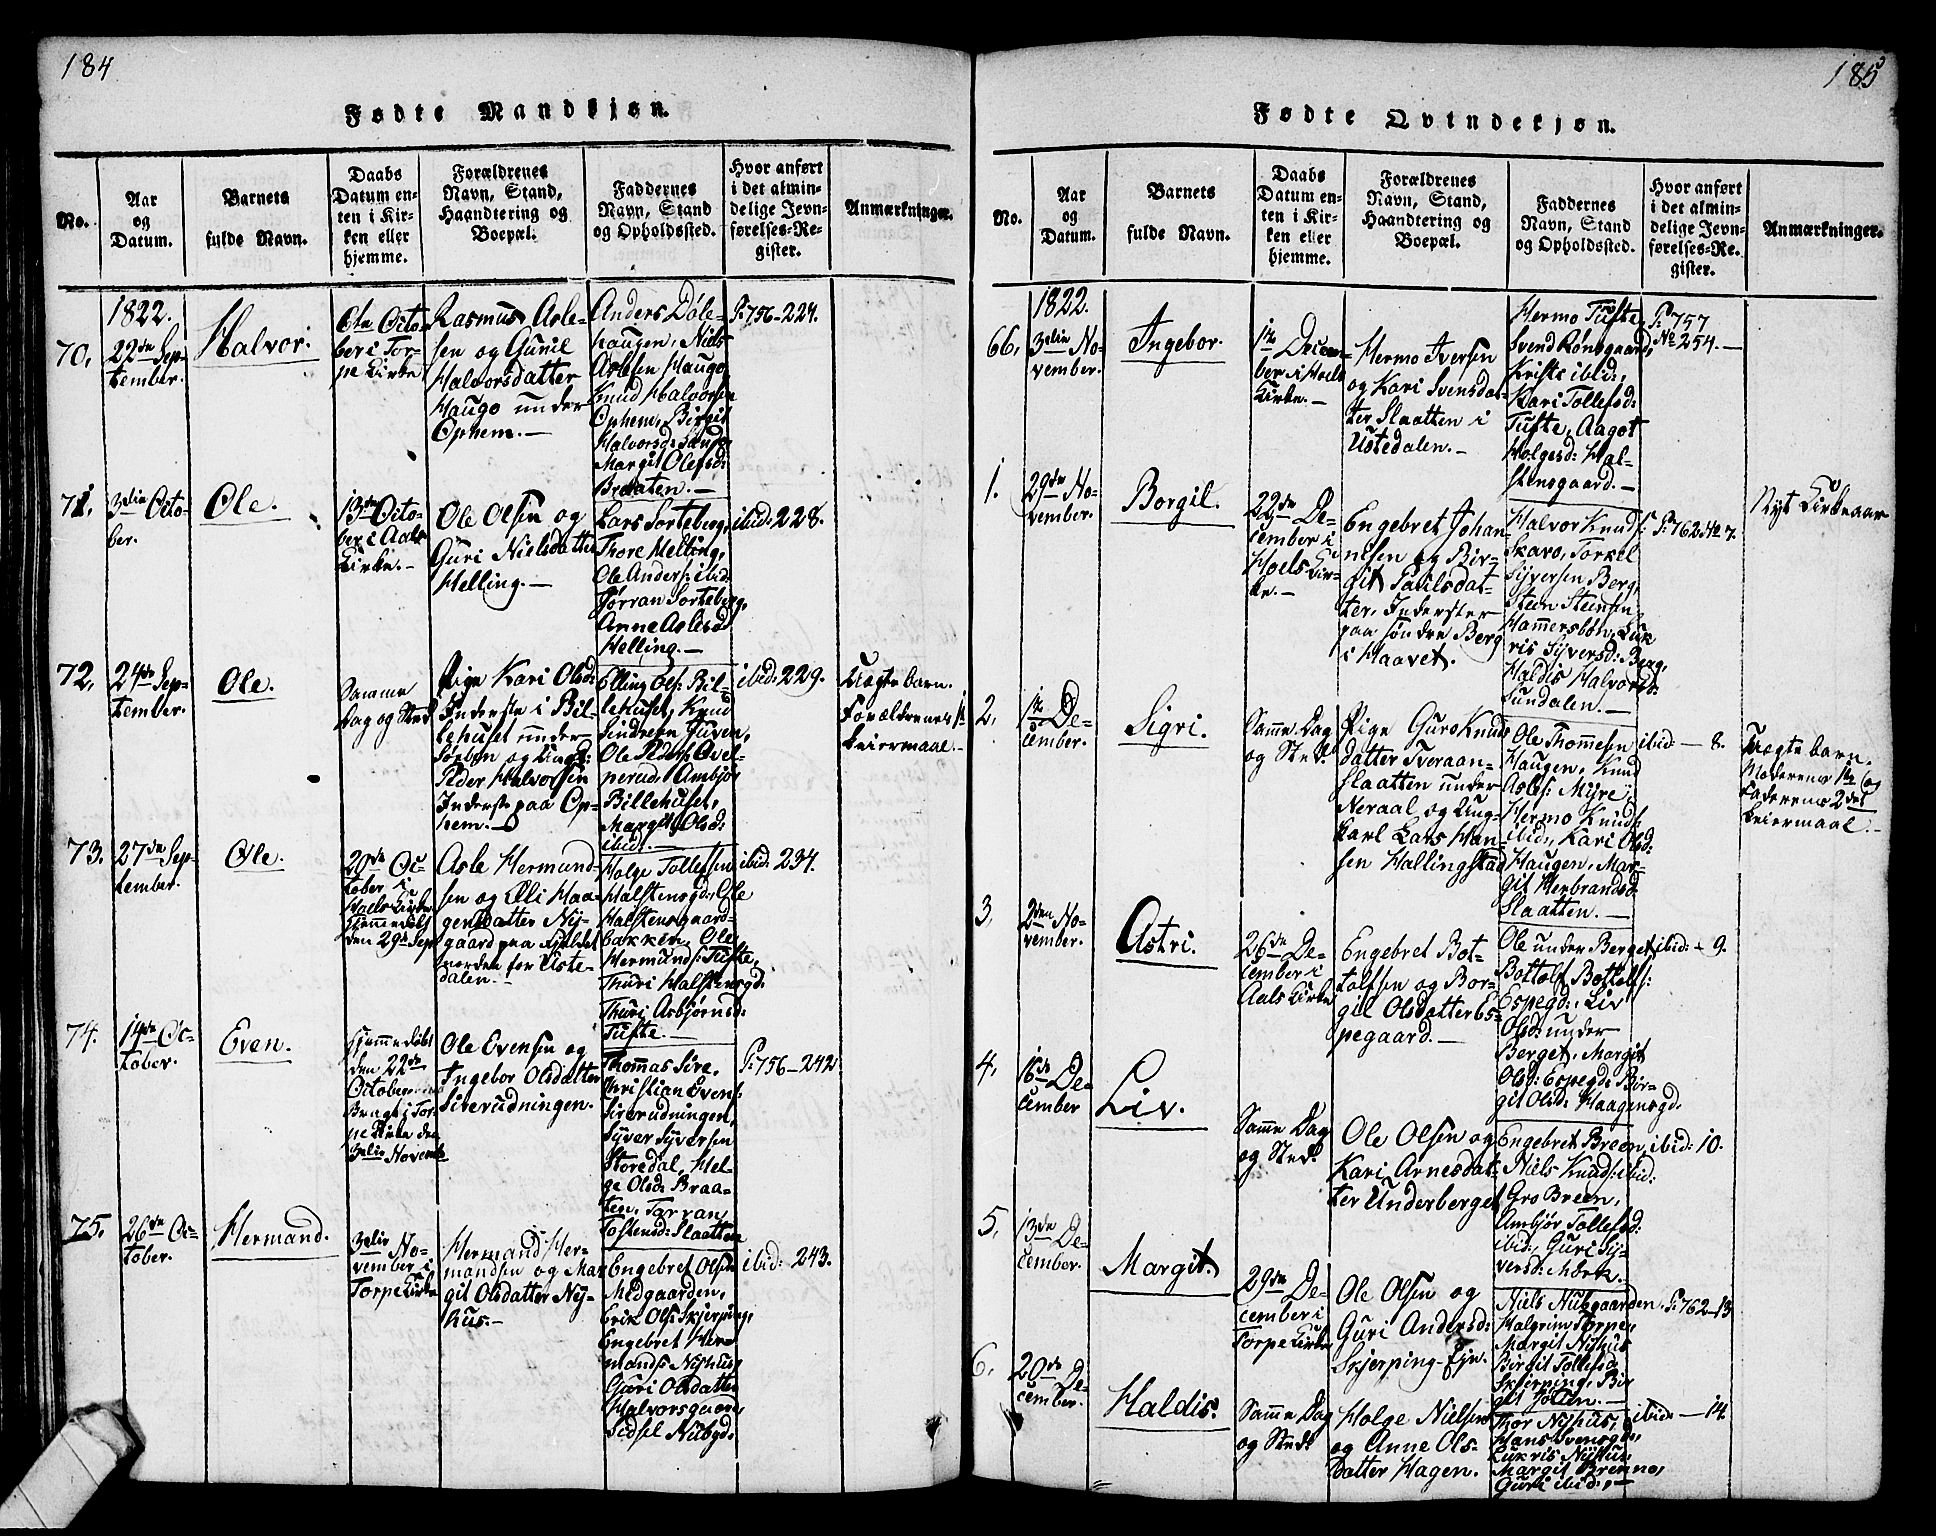 184
Fødte Mandkjøn.
No.
Aar
og
Datum.
Barnets
fulde Navn.
Daabs
Datum en-
ten i Kir-
ken eller
hjemme.
Forældrenes
Navn, Stand,
Haandtering og
Boepæl.
Faddernes
Navn, Stand
og Opholdssted.
Hvor anført
i det almin-
delige Jevn-
førelses-Re-
gister.
Anmærkninger.
1822.
70.
22de Sep-
tember.
Halvor.
6te Octo-
ber i Tor-
pe Kirke
Rasmus Asle-
sen og Gunil
Halvorsdatter
Haugo under
Ophem.—
Anders Døle-
haugen, Niels
Aslesen Haugo,
Knud Halvorsen
Ophem, Birgit
Halvorsd: Haugo
Margit Olefsd:
Braaten.—
P:756-227.
71.
3die Octo-
ber.
Ole.
13de Octo-
ber i Aals
Kirke.—
Ole Olsen og
Guri Nielsdatter
Helling.—
Lars Sorteberg,
Thore Helling,
Ole Anders: ibid:
Jørran Sorteberg,
Anne Aslesd
Helling.—
ibid: 228.
72.
24de Sep-
tember.
Ole.
Samme
Dag og Sted
Pige Kari Olsd:
Inderste i Bil-
lehuset under
Sørbøn og Ungk:
Peder Halvorsen
Inderste paa Op-
hem.—
Elling Ols: Bil-
lehuset, Knud
Sindresen Juven,
Ole Peders: Avel-
perud, Ambjør
Billehuset,
Margit Olsd:
ibid:—
ibid: 229.
Uægte barn.
Forældrenes 1te
Leiermaal.—
73.
27de Sep-
tember.
Ole.
20de Oc-
tober i
Hoels Kirke
hjemmedøbt
den 29de Sep.
Asle Hermund-
sen og Elli Haa-
gensdatter Ny-
gaard paa Fjeldet
norden for Uste-
dalen.—
Holge Tollefsen
Halstensgd: Ole
Halstensgaard-
bakken, Ole
Hermunds: Tufte,
Thuri Halstensgd:
Thuri Asbjørnsd:
Tufte.—
ibid: 234.
74.
14de Oc-
tober.
Even.
hjemmedøbt
den 22de
October
Bragt i Tor-
pe Kirke den
3die Novemb:
Ole Evensen og
Ingebor Olsdatter
Sirerudningen.
Thommas Sire,
Christian Evens:
Sirerudningen,
Syver Syversen
Storedal, Hel-
ge Olsd: Braa-
ten, Torran
Tostensd: Slaatten
P:756-242.
75.
26de Oc-
tober.
Hermand.
3die No-
vember i
Torpe Kirke
Hermand Her-
mandsen og Mar
git Olsdatter Ny-
hus.—
Engebret Olsen
Medgaarden,
Erik Ols: Skjerping,
Engebret Her-
mands: Nyhus,
Guri Olsdatter
Halvorsgaard,
Sidsel Nubgd:
ibid: 243.
185
Fødte Qvindekjøn.
No.
Aar
og
Datum.
Barnets
fulde Navn.
Daabs
Datum en-
ten i Kir-
ken eller
hjemme.
Forældrenes
Navn, Stand,
Haandtering og
Boepæl.
Faddernes
Navn, Stand
og Opholdssted.
Hvor anført
i det almin-
delige Jevn-
førelses-Re-
gister.
Anmærkninger.
1822.
66.
3die No-
vember.
Ingebor.
1te Decem-
ber i Hoels
Kirke.—
Hermo Iversen
og Kari Svensdat-
ter Slaatten i
Ustedalen.—
Hermo Tufte,
Svend Rønsgaard,
Kristi ibid:,
Kari Tollefsd:
Tufte, Aagot
Holgesd: Hal-
stensgaard.—
P:757
No 254.—
1.
29de No-
vember.
Borgil.
22de De-
cember i
Hoels Kir-
ke.—
Engebret Johan-
nesen og Bir-
git Paulsdat-
ter, Inderster
paa søndre Berg
i Haavet.
Halvor Knuds:
Skaro, Torkel
Syversen Berg,
Steen Steensen
Hammersbøn, Luk
ris Syversd: Berg,
Haldis Halvorsd:
Sundalen.—
P:762 No 7.
Nyt Kirkeaar
2.
1te De-
cember.
Sigri.
Samme Dag
og Sted.
Pige Guro Knuds
datter Tveraan-
slaatten under
Neraal og Ung-
karl Lars Han-
sen Hallingstad
Ole Thommesen
Haugen, Knud
Asles: Myre,
Hermo Knuds:
ibid:, Kari Olsd:
Haugen, Mar-
git Herbrandsd:
Slaatten.—
ibid — 8.
Uægte barn.
Moderens 1te og
Faderens 2det
Leiermaal.—
3.
2den No-
vember.
Astri.
26de De-
cember i
Aals Kirke
Engebret Bot-
tolfsen og Bor-
gil Olsdatter Es-
pegaard.—
Ole under Berget,
Bottolf Bottolfs:
Espegd: Liv
Olsd: under
Berget, Margit
Olsd: Espegd: Bir-
git Olsd: Haagensgd.
ibid: - 9.
4.
16de De-
cember
Liv.
Samme Dag
og Sted.
Ole Olsen og
Kari Arnesdat-
ter Underberget
Engebret Breen,
Niels Knuds: ibid:
Gro Breen,
Ambjør Tollefsd:
ibid:, Guri Sy-
versd: Mørk.—
ibid: 10.
5.
13de De-
cember.
Margit.
29de De-
cember i
Torpe Kirke
Ole Olsen og
Guri Andersd:
Skjerping-Eje.
Niels Nubgaarden,
Halgrim Torpe,
Margit Nyhus
Birgit Tollefsd
Skjerping, Bir
git Jøtten.—
P:762-13
6.
20de De-
cember.
Haldis.
Samme Dag
og Sted
Holge Nielsen
og Anne Ols-
datter Hagen.
Thor Nyhus,
Hans Svensgd:,
Lukris Nyhus,
Margit Brenno,
Guri ibid:,—
ibid: — 14.